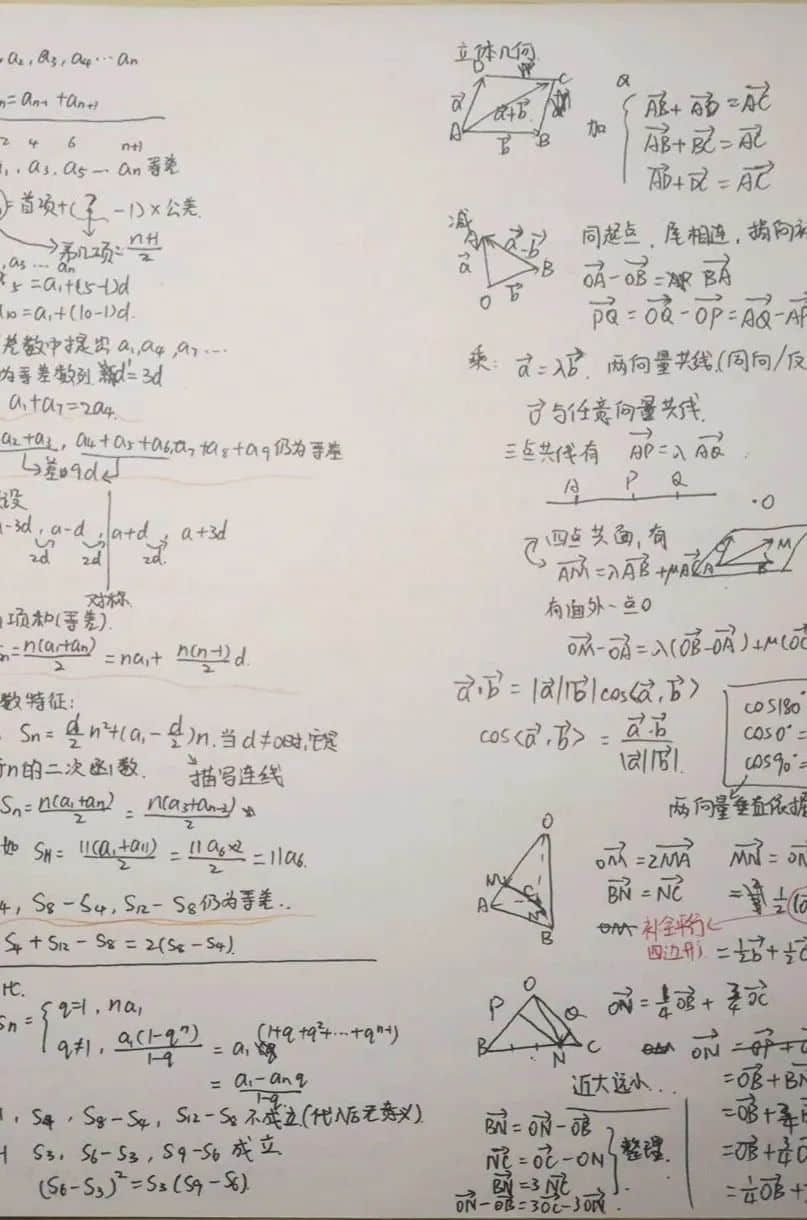 a₂, a₃, a₄…an
=an-1+an+1
2 4 6 n+1
a₃, a₅…an等差
=首项+(?-1)×公差
第几项=n+1/2
a₃…an
₅=a₁+(5-1)d
a₁₀=a₁+(10-1)d.
差数中提出a₁,a₄,a₇…
为等差数列 新d'=3d
a₁+a₇=2a₄.
a₂+a₃, a₄+a₅+a₆, a₇+a₈+a₉仍为等差
差为9d
设
a-3d, a-d, a+d, a+3d
2d 2d 2d
对称
项和(等差).
=n(a₁+an)/2=na₁+n(n-1)/2 d.
数特征:
Sn=d/2 n²+(a₁-d/2)n.当d≠0时,它是
n的二次函数. 描写连线
Sn=n(a₁+an)/2=n(a₃+an-2)/2
如 S₁₁=11(a₁+a₁₁)/2=11a₆×2/2=11a₆.
₄, S₈-S₄, S₁₂-S₈仍为等差..
S₄+S₁₂-S₈=2(S₈-S₄).
比.
Sn={q=1, na₁
q≠1, a₁(1-qⁿ)/1-q=a₁(1+q+q²+…+qⁿ⁻¹)
=a₁-anq/1-q
S₄, S₈-S₄, S₁₂-S₈不成立(代入后无意义)
S₃, S₆-S₃, S₉-S₆成立
(S₆-S₃)²=S₃(S₉-S₆)
立体几何
D C
a⃗ a⃗+b⃗
A b⃗ B
加{AB⃗+AD⃗=AC⃗
AB⃗+BC⃗=AC⃗
AD⃗+DC⃗=AC⃗
减 A a⃗-b⃗
a⃗ B
O b⃗
同起点,尾相连,指向
OA⃗-OB⃗=BA⃗
PQ⃗=OQ⃗-OP⃗=AQ⃗-AP
乘: a⃗=λb⃗.两向量共线.(同向/反
0⃗与任意向量共线.
三点共线有 AP⃗=λAQ⃗.
A P Q
·O
四点共面,有
AM⃗=λAB⃗+μAC⃗
C M
A B
有面外一点O
OM⃗-OA⃗=λ(OB⃗-OA⃗)+μ(OC
a⃗·b⃗=|a⃗||b⃗|cos⟨a⃗,b⃗⟩
cos⟨a⃗,b⃗⟩=a⃗·b⃗/|a⃗||b⃗|.
cos180°
cos0°=
cos90°=
两向量垂直依据
O
M
A C N
B
OM⃗=2MA⃗ MN⃗=ON
BN⃗=NC⃗ =1/2(
补全平行
四边形 =1/2b⃗+1/2c
O
P Q
B N C
ON⃗=1/4OB⃗+3/4OC⃗
ON⃗=OP⃗+
近大远小... =OB⃗+BN
BN⃗=ON⃗-OB⃗ =OB⃗+3/4B
NC⃗=OC⃗-ON 整理. =OB⃗+3/4(
BN⃗=3NC⃗
ON⃗-OB⃗=3OC⃗-3ON⃗. =1/4OB⃗+